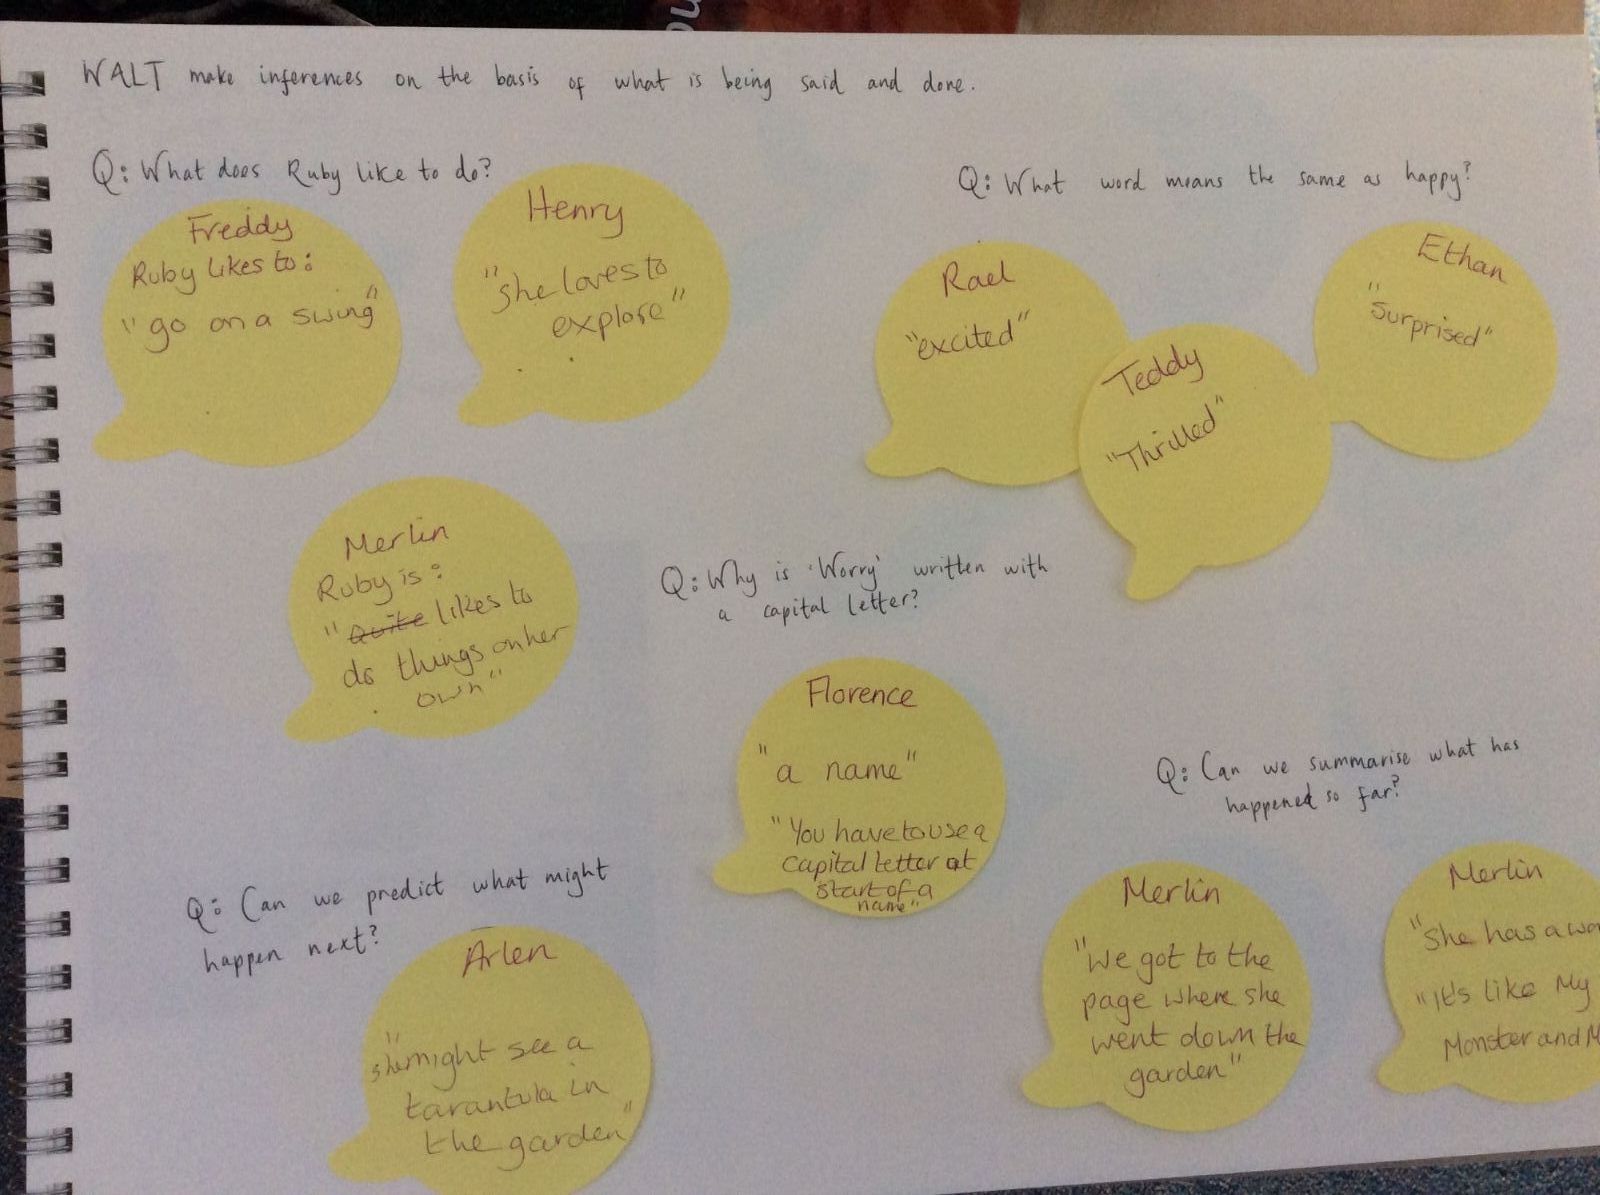 WALT make inferences on the basis of what is being said and done.
Q: What does Ruby like to do?
Freddy
Ruby likes to:
"go on a swing"
Henry
"she loves to
explore"
Merlin
Ruby is:
"Quite likes to
do things on her
own"
Q: What word means the same as happy?
Rael
"excited"
Teddy
"Thrilled"
Ethan
"Surprised"
Q: Why is 'Worry' written with
a capital letter?
Florence
"a name"
"You have to use a
capital letter at
start of a
name"
Q: Can we predict what might
happen next?
Arlen
"she might see a
tarantula in
the garden"
Q: Can we summarise what has
happened so far?
Merlin
"We got to the
page where she
went down the
garden"
Merlin
"She has a
"It's like My
Monster and